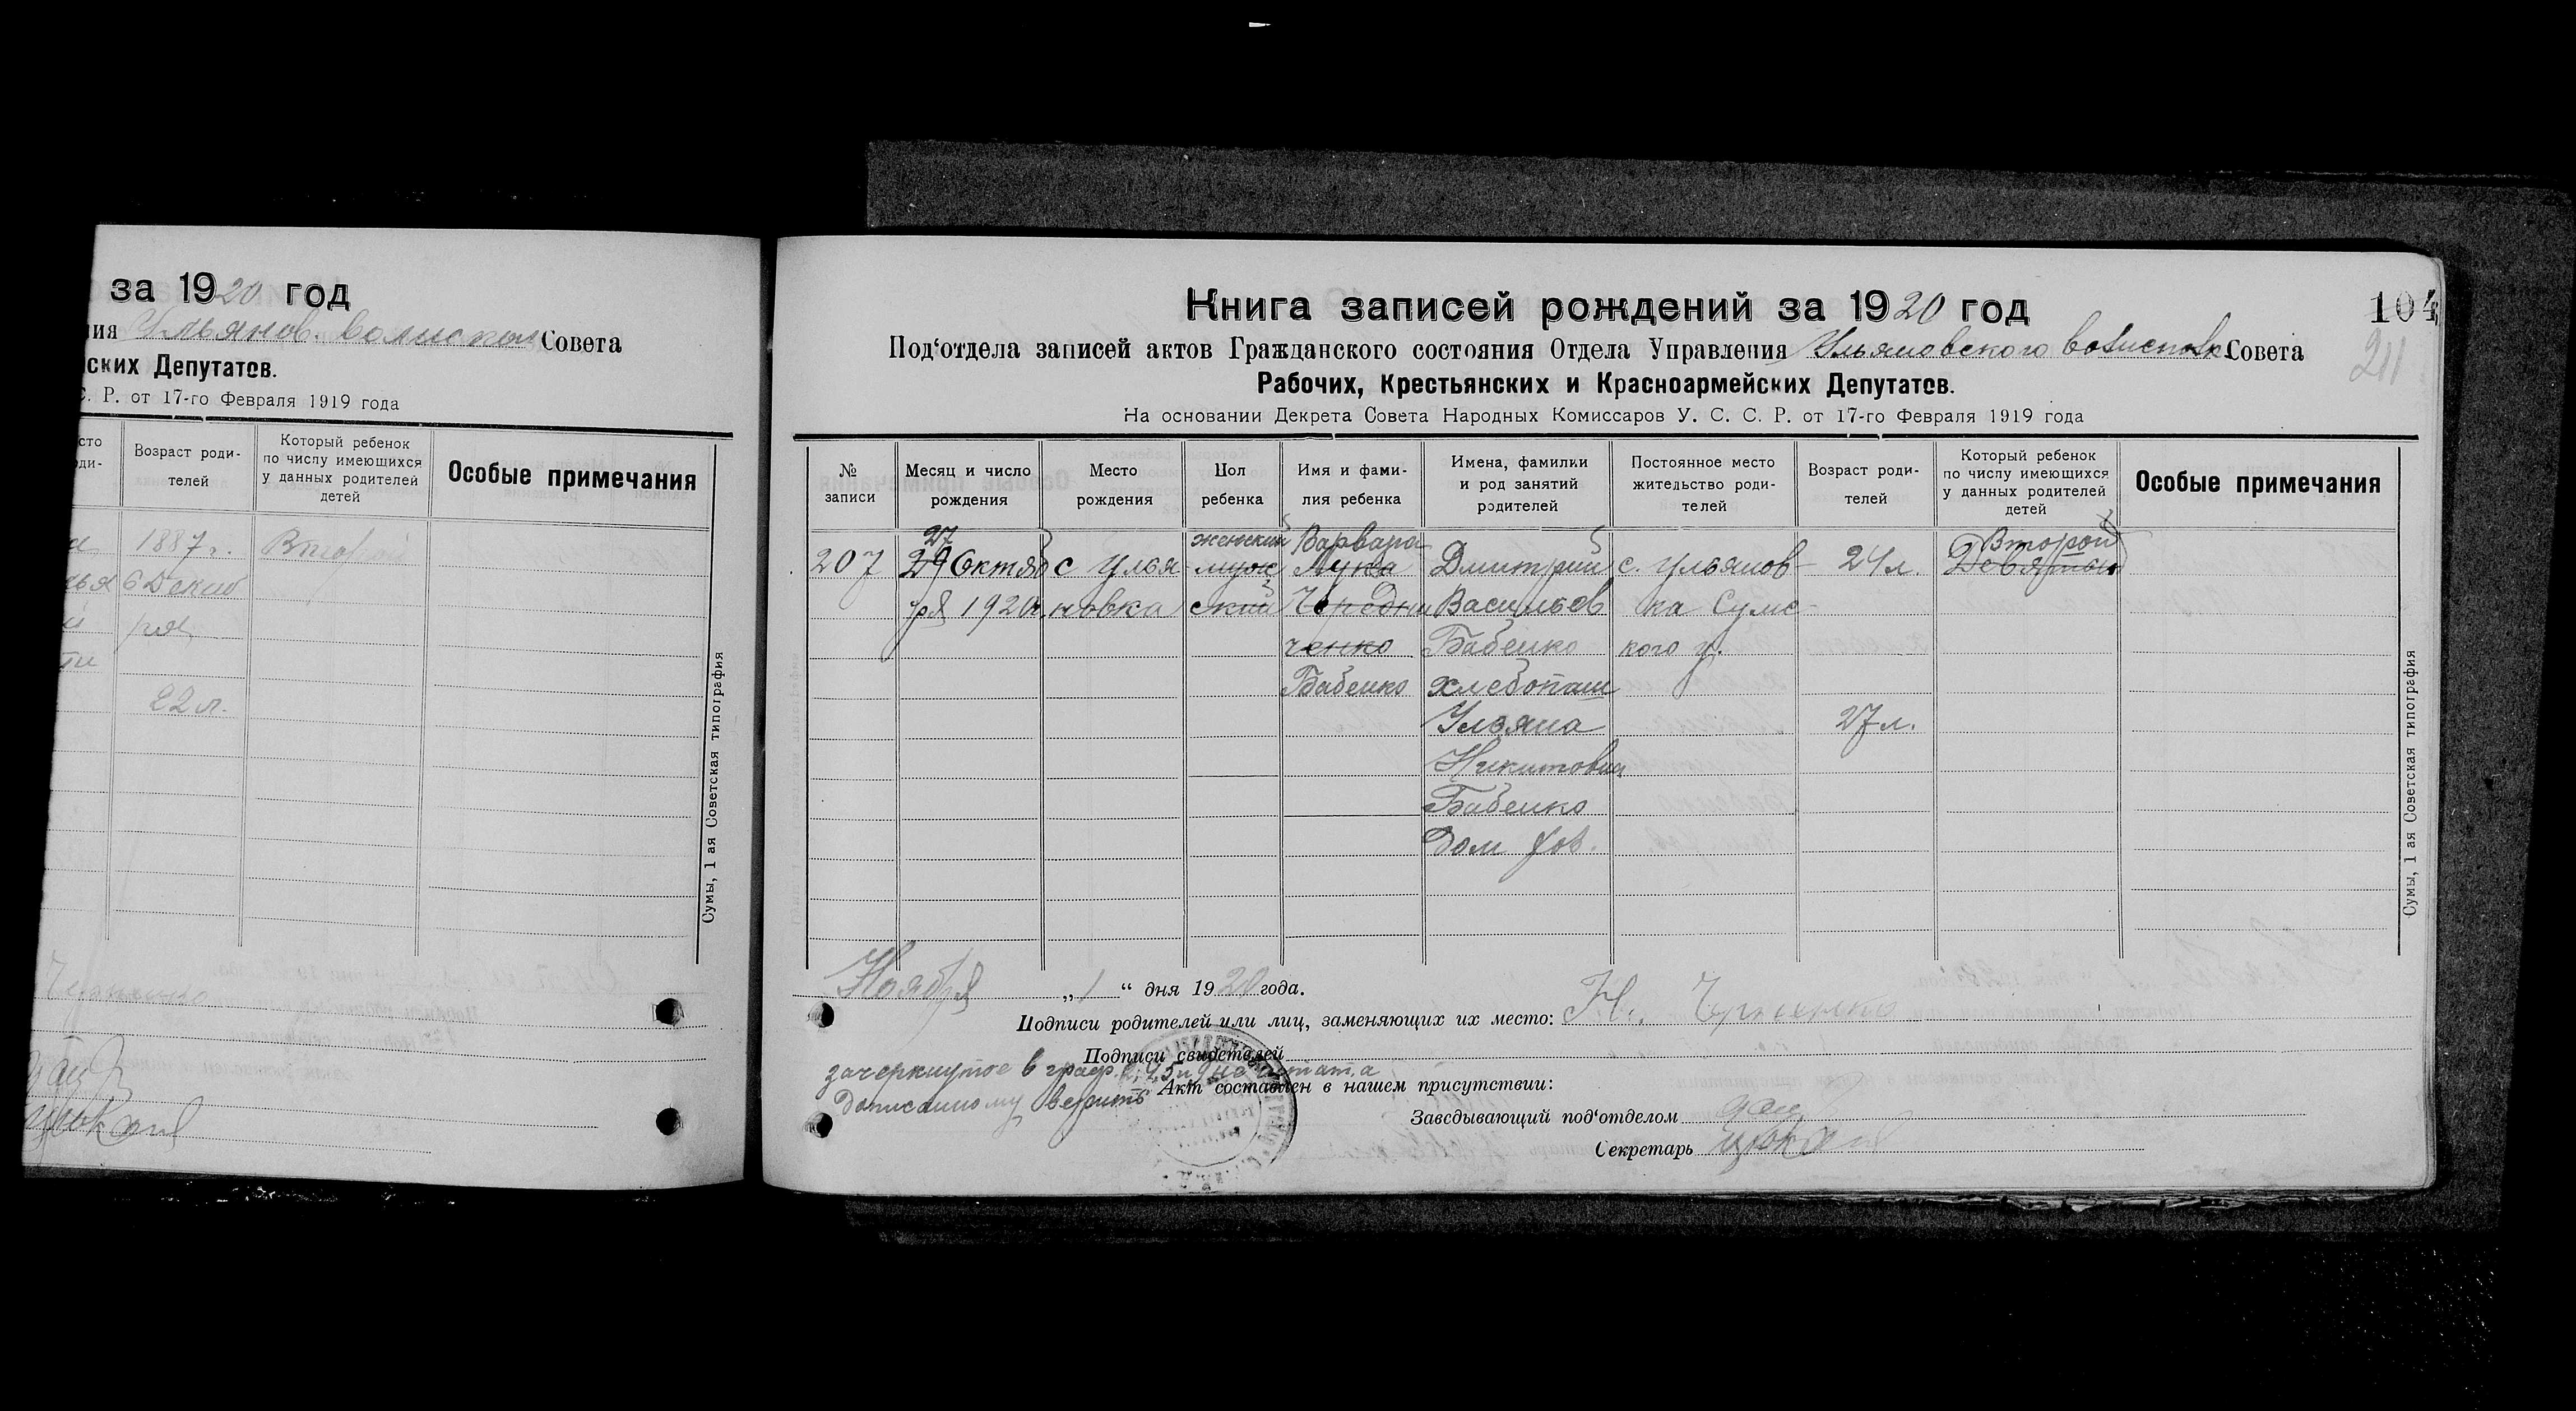 за 1920 год
ия Ульянов. волиспол Совета
ских Депутатов.
С. Р. от 17-го Февраля 1919 года
сто
ди-
Возраст роди-
телей
Который ребенок
по числу имеющихся
у данных родителей
детей
Особые примечания
1887 г.
6 Декаб
ря
22 л.
Второй
Сумы, 1 ая Советская типография
Книга записей рождений за 1920 год
104
211
Под‘отдела записей актов Гражданского состояния Отдела Управления Ульяновского волисполк. Совета
Рабочих, Крестьянских и Красноармейских Депутатов.
На основании Декрета Совета Народных Комиссаров У. С. С. Р. от 17-го Февраля 1919 года
№
записи
Месяц и число
рождения
Место
рождения
Пол
ребенка
Имя и фами-
лия ребенка
Имена, фамилки
и род занятий
родителей
Постоянное место
жительство роди-
телей
Возраст роди-
телей
Который ребенок
по числу имеющихся
у данных родителей
детей
Особые примечания
207
27
29 Октяб
ря 1920 г.
с Улья
новка
женский
муж
ский
Варвара
Лука
Чередни
ченко
Бабенко
Дмитрий
Васильев
Бабенко
хлебопаш
Ульяна
Никитовна
Бабенко
дом хоз.
с. Ульянов-
ка Сумс-
кого у.
24 л.
27 л.
Второй
Девятый
Сумы, 1 ая Советская типография
Ноября „1“ дня 1920 года.
Подписи родителей или лиц, заменяющих их место: Н.
Подписи свидетелей
зачеркнутое в граф. 2, 4, 5 и 9 не читать, а
дописанному верить
Акт составлен в нашем присутствии:
Заведывающий под‘отделом
Секретарь